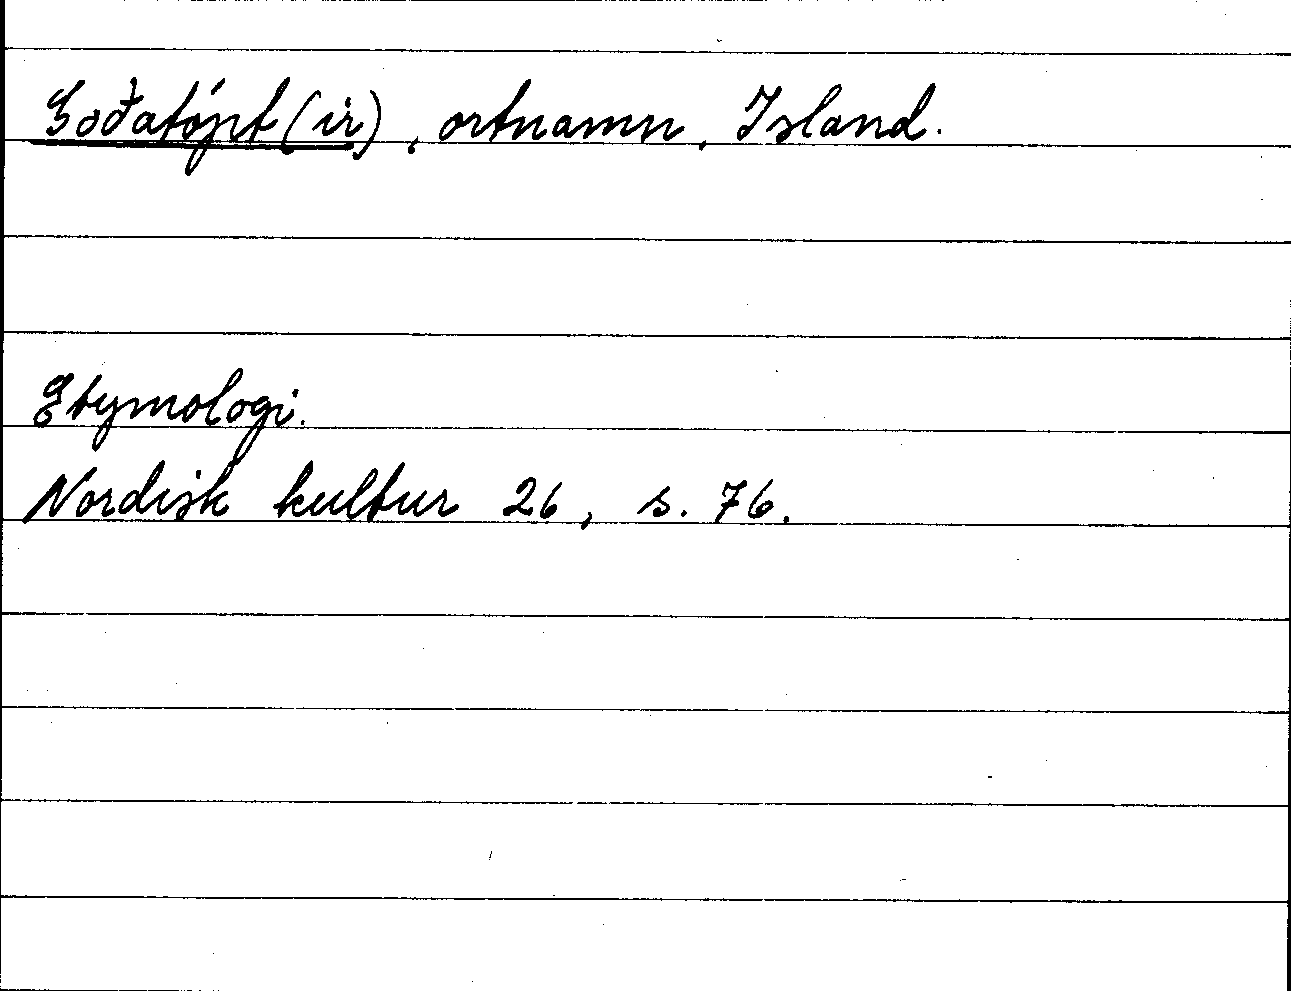 Goðatópt(ir), ortnamn, Island.
Etymologi.
Nordisk kultur 26, s. 76.